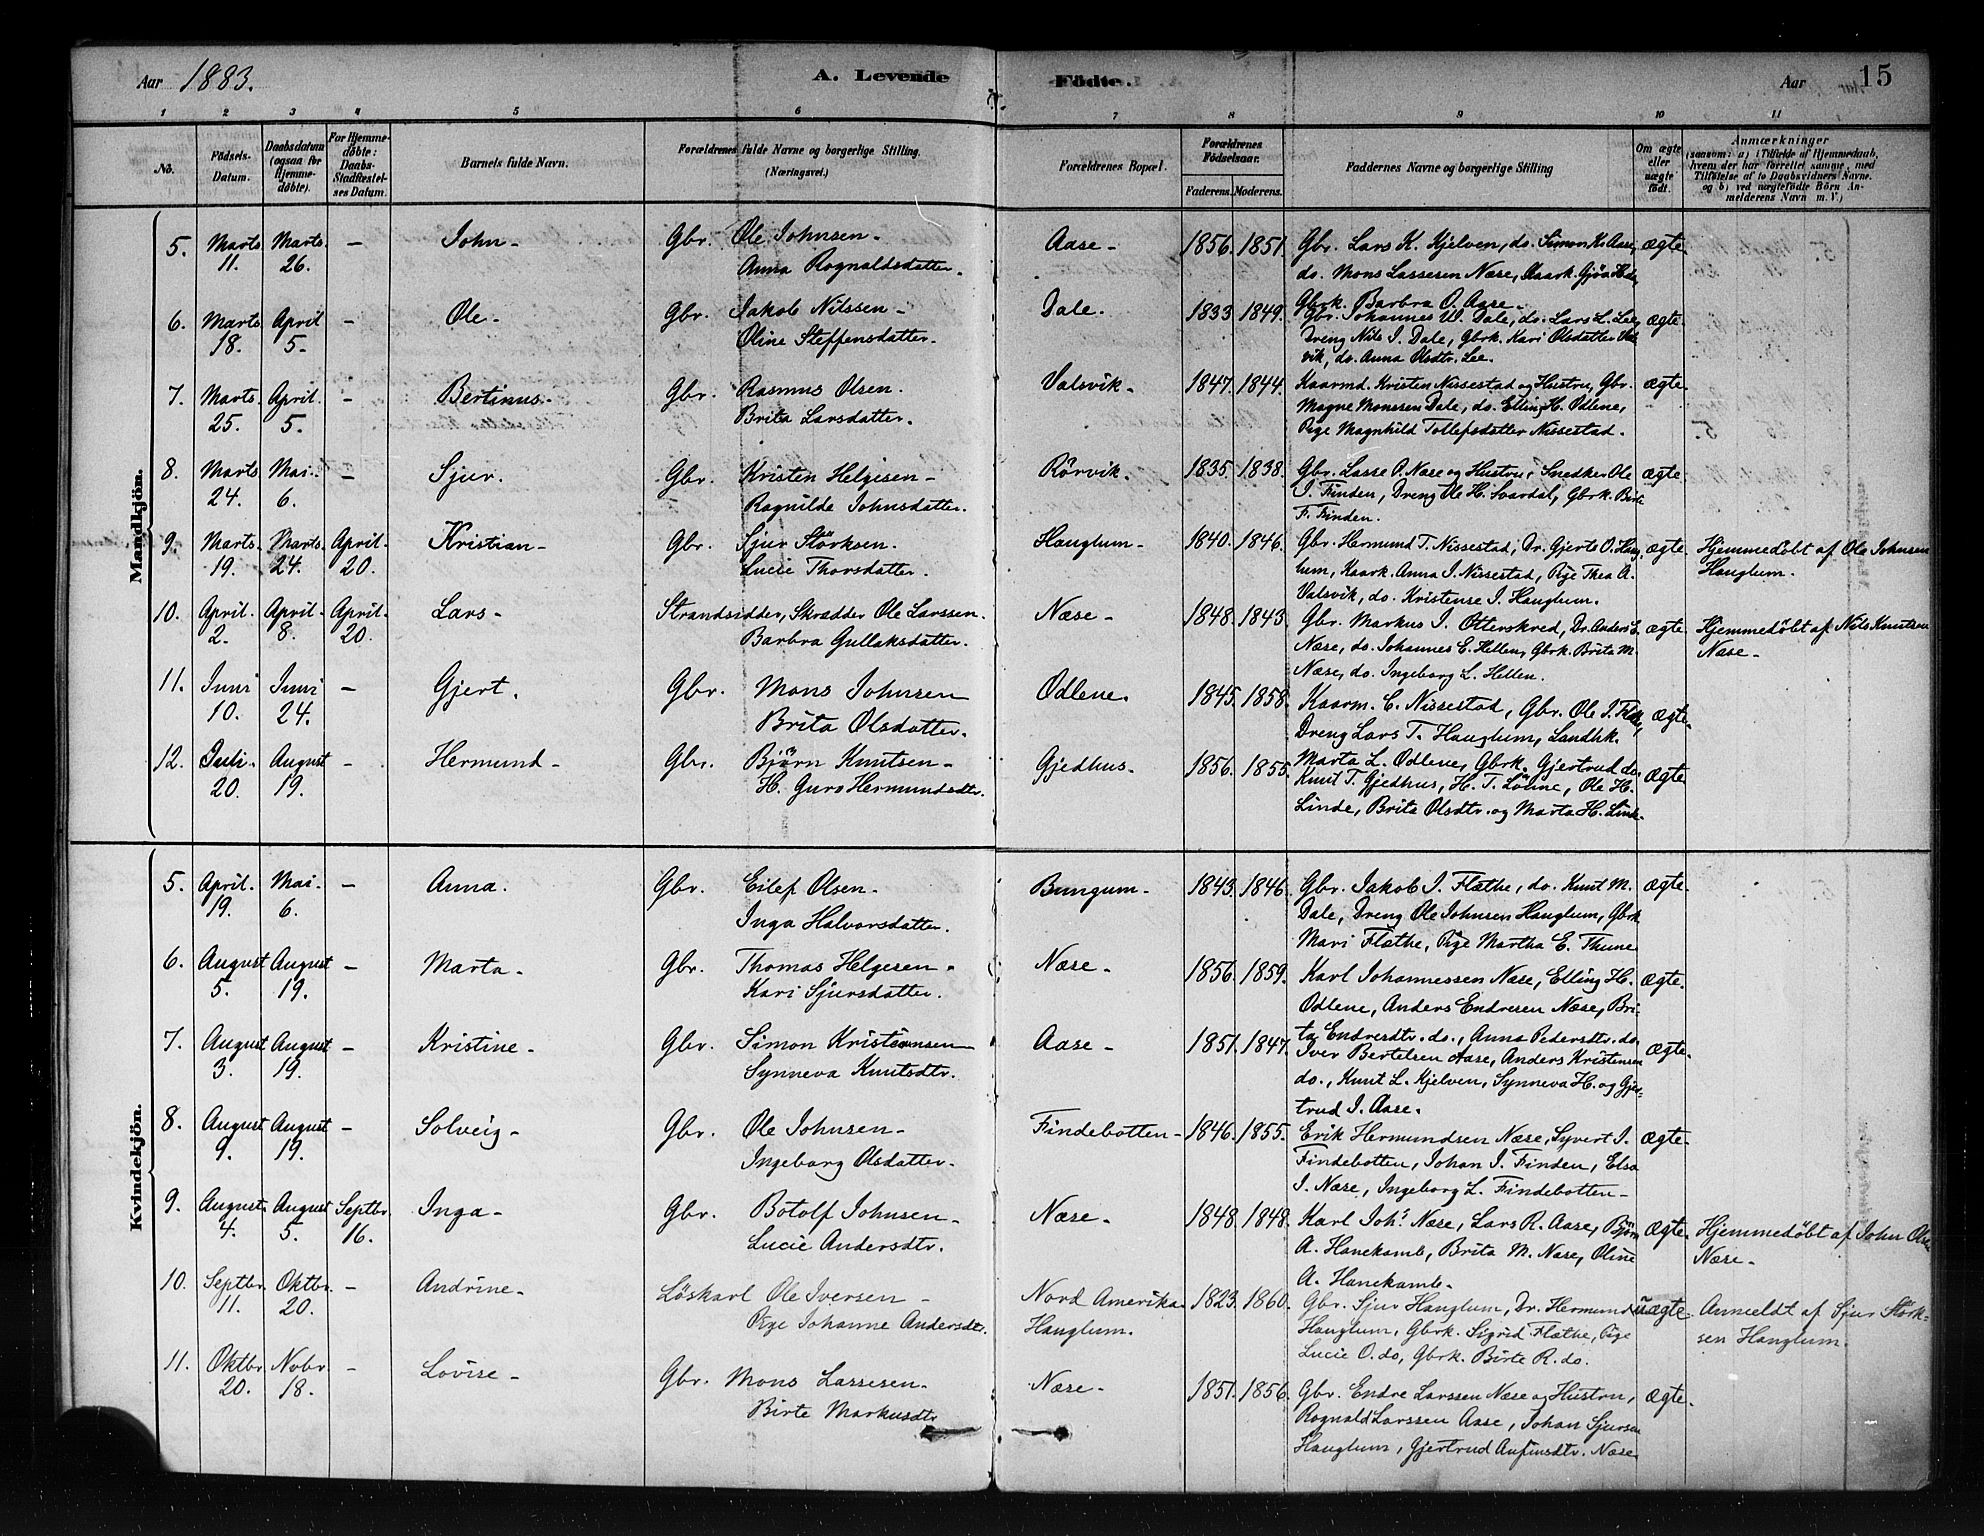 Aar 1883. A. Levende Födte. Aar 15
1 2 3 4 5 6 7 8 9 10 11
No. Födsels-Datum. Daabsdatum (ogsaa for Hjemmedöbte). For Hjemmedöbte: Daabs-Stadfæstelses Datum. Barnets fulde Navn. Forældrenes fulde Navne og borgerlige Stilling. (Næringsvei.) Forældrenes Bopæl. Forældrenes Födselsaar. Faderens. Moderens. Faddernes Navne og borgerlige Stilling Om ægte eller uægte födt. Anmærkninger (saasom: a) i Tilfælde af Hjemmedaab, hvem der har forrettet samme, med Tilföielse af to Daabsvidners Navne. og b) ved uægtefödte Börn Anmelderens Navn m. V.)
Mandkjön.
5. Marts 11. Marts 26. — John — Gbr. Ole Johnsen — Aase — 1856. 1851. Gbr. Lars K. Kjelven, do. Simon K. Aase, ægte.
Anna Rognaldsdatter. do. Mons Lassesen Næse,
Gbrk. Barbra O. Aase —
6. Marts 18. April 5. — Ole — Gbr. Jakob Nilssen — Dale. 1833 1849. Gbr. Johannes W. Dale, do. Lars L. Lee, ægte.
Oline Steffensdatter. Dreng Nils J. Dale, Gbrk. Kari Olsdatter Valsvik, do. Anna Olsdtr. Lee.
7. Marts 25. April 5. — Bertinus — Gbr. Rasmus Olsen. Valsvik — 1847. 1844. Kaarmd. Kristen Nissestad og Hustru, Gbr. ægte.
Brita Larsdatter. Magne Monssen Dale, do. Elling H. Odlene,
Pige Magnhild Tollefsdatter Nissestad.
8. Marts 24. Mai 6. — Sjur. Gbr. Kristen Helgesen — Rörvik. 1835 1838. Gbr. Lasse P. Næse og Hustru, Snedker Ole ægte
Ragnilde Johnsdatter. I. Finden, Dreng Ole H. Svardal, Gbrk. Birte
F. Finden.
9. Marts 19. Marts 24. April 20. Kristian — Gbr. Sjur Störksen. Hauglum — 1840. 1846. Gbr. Hermund T. Nissestad, Dr. Gjerts O. Haug- ægte. Hjemmedöbt af Ole Johnsen
Lucie Thorsdatter. lum, Kaark. Anna I. Nissestad, Pige Thea A. Hauglum.
Valsvik, do. Kristense I. Hauglum.
10. April 2. April 8. April 20. Lars — Strandsidder, Skrædder Ole Larssen. Næse — 1848. 1843 Gbr. Markus I. Otterskred, Dr. Anders E. ægte. Hjemmedöbt af Nils Knutsen
Barbra Gullaksdatter. Næse, do. Johannes E. Hellen, Gbrk. Brita M. Næse —
Næse, do. Ingeborg L. Hellen.
11. Juni 10. Juni 24. — Gjert. Gbr. Mons Johnsen Odlene. 1845. 1858. Kaarm. E. Nissestad, Gbr. Ole I. ægte
Brita Olsdatter. Dreng Lars T. Hauglum, Landhk.
Marta L. Odlene, Gbrk. Gjertrud do.
12. Juli 20. August 19. — Hermund — Gbr. Björn Knutsen — Gjedhus — 1856. 1855. Knut T. Gjedhus, H. T. Lönne, Ole H. ægte
H. Guro Hermundsdtr. Linde, Brita Olsdtr. og Marta H. Linde.
Kvindekjön.
5. April 19. Mai 6. — Anna. Gbr. Eilef Olsen — Bungum — 1843. 1846. Gbr. Jakob I. Flæthe, do. Knut M. ægte.
Inga Halvorsdatter. Dale, Dreng Ole Johnsen Hauglum, Gbrk
Mari Flæthe, Pige Martha E. Thune
6. August 5. August 19. — Marta — Gbr. Thomas Helgesen — Næse — 1856. 1859. Karl Johannessen Næse, Elling H. ægte.
Kari Sjursdatter. Odlene, Anders Endresen Næse, Bri-
ta Endresdtr. do., Anna Pedersdtr. do.
7. August 3. August 19. — Kristine — Gbr. Simon Kristiansen Aase — 1851. 1847. Iver Bertelsen Aase, Anders Kristensen ægte.
Synneva Knutsdtr. do., Knut L. Kjelven, Synneva H. og Gjer-
trud I. Aase.
8. August 9. August 19. — Solveig — Gbr. Ole Johnsen — Findebotten — 1846. 1855. Erik Hermundsen Næse, Syvert I. ægte
Ingeborg Olsdatter. Findebotten, Johan I. Finden, Elsa
I. Næse, Ingeborg L. Findebotten —
9. August 4. August 5. Septbr. 16. Inga — Gbr. Botolf Johnsen — Næse — 1848. 1848. Karl Joh. Næse, Lars R. Aase, Björn ægte. Hjemmedöbt af John Olsen
Lucie Andersdtr. A. Hanekamb, Brita M. Næse, Oline Næse —
A. Hanekamb —
10. Septbr. 11. Oktbr. 20. — Andrine — Löskarl Ole Iversen — Nord Amerika. 1823. 1860. Gbr. Sjur Hauglum, Dr. Hermund uægte Anmeldt af Sjur Störk-
Pige Johanne Andersdtr. Hauglum. Hauglum, Gbrk. Sigrid Flæthe, Pige sen Hauglum.
Lucie O. do, Gbrk. Birte R. do.
11. Oktbr 20. Novbr 18. — Lovise — Gbr. Mons Lassesen — Næse — 1851. 1856. Gbr. Endre Larssen Næse og Hustru, ægte.
Birte Markusdtr Rognald Larssen Aase, Johan Sjursen
Hauglum, Gjertrud Anfinsdtr. Næse